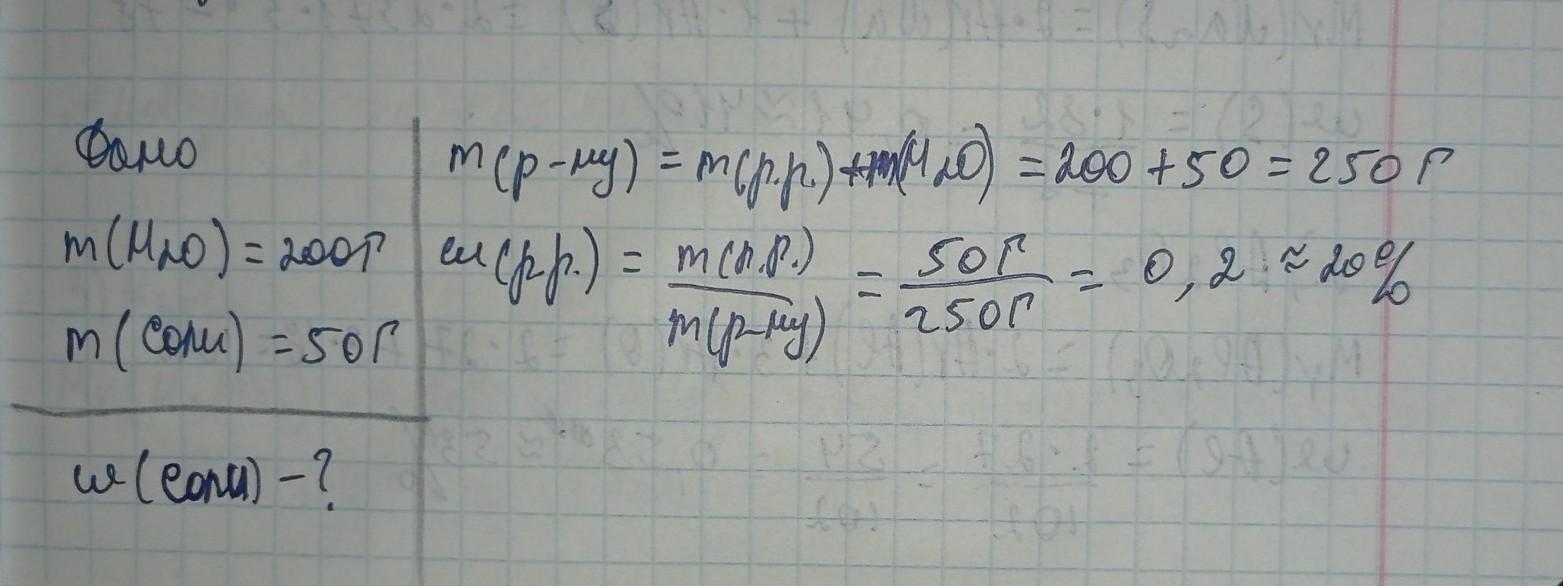 Дано
m(H2O) = 200г
m(соли) = 50г
ω(соли) - ?
m(р-ну) = m(р.р.) + m(H2O) = 200 + 50 = 250г
ω(р.р.) = m(р.р.) / m(р-ну) = 50г / 250г = 0,2 ≈ 20%